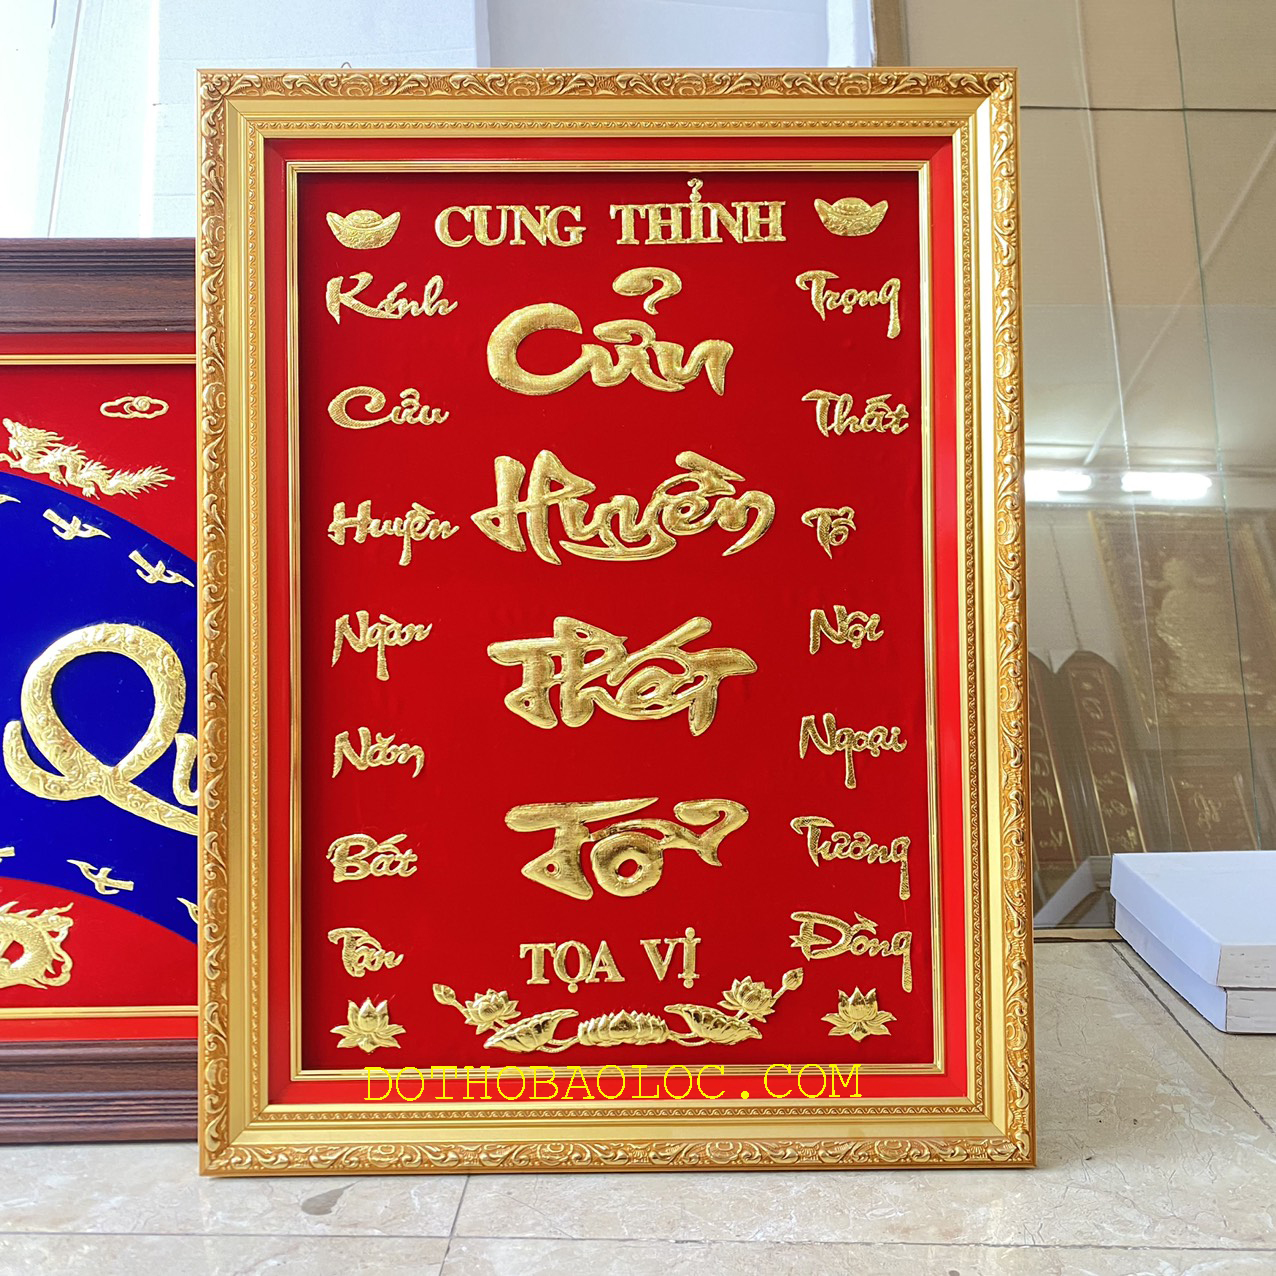 CUNG THỈNH
Kính
Cửu
Huyền
Ngàn
Năm
Bất
Tân
Cửu
Huyền
Thất
Tổ
TỌA VỊ
Trọng
Thất
Tổ
Nội
Ngoại
Tương
Đồng
DOTHOBAOLOC.COM